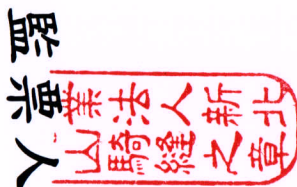 監票人
業法人新北
山騎縫之章